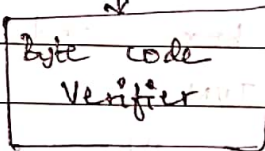 Byte code
Verifier